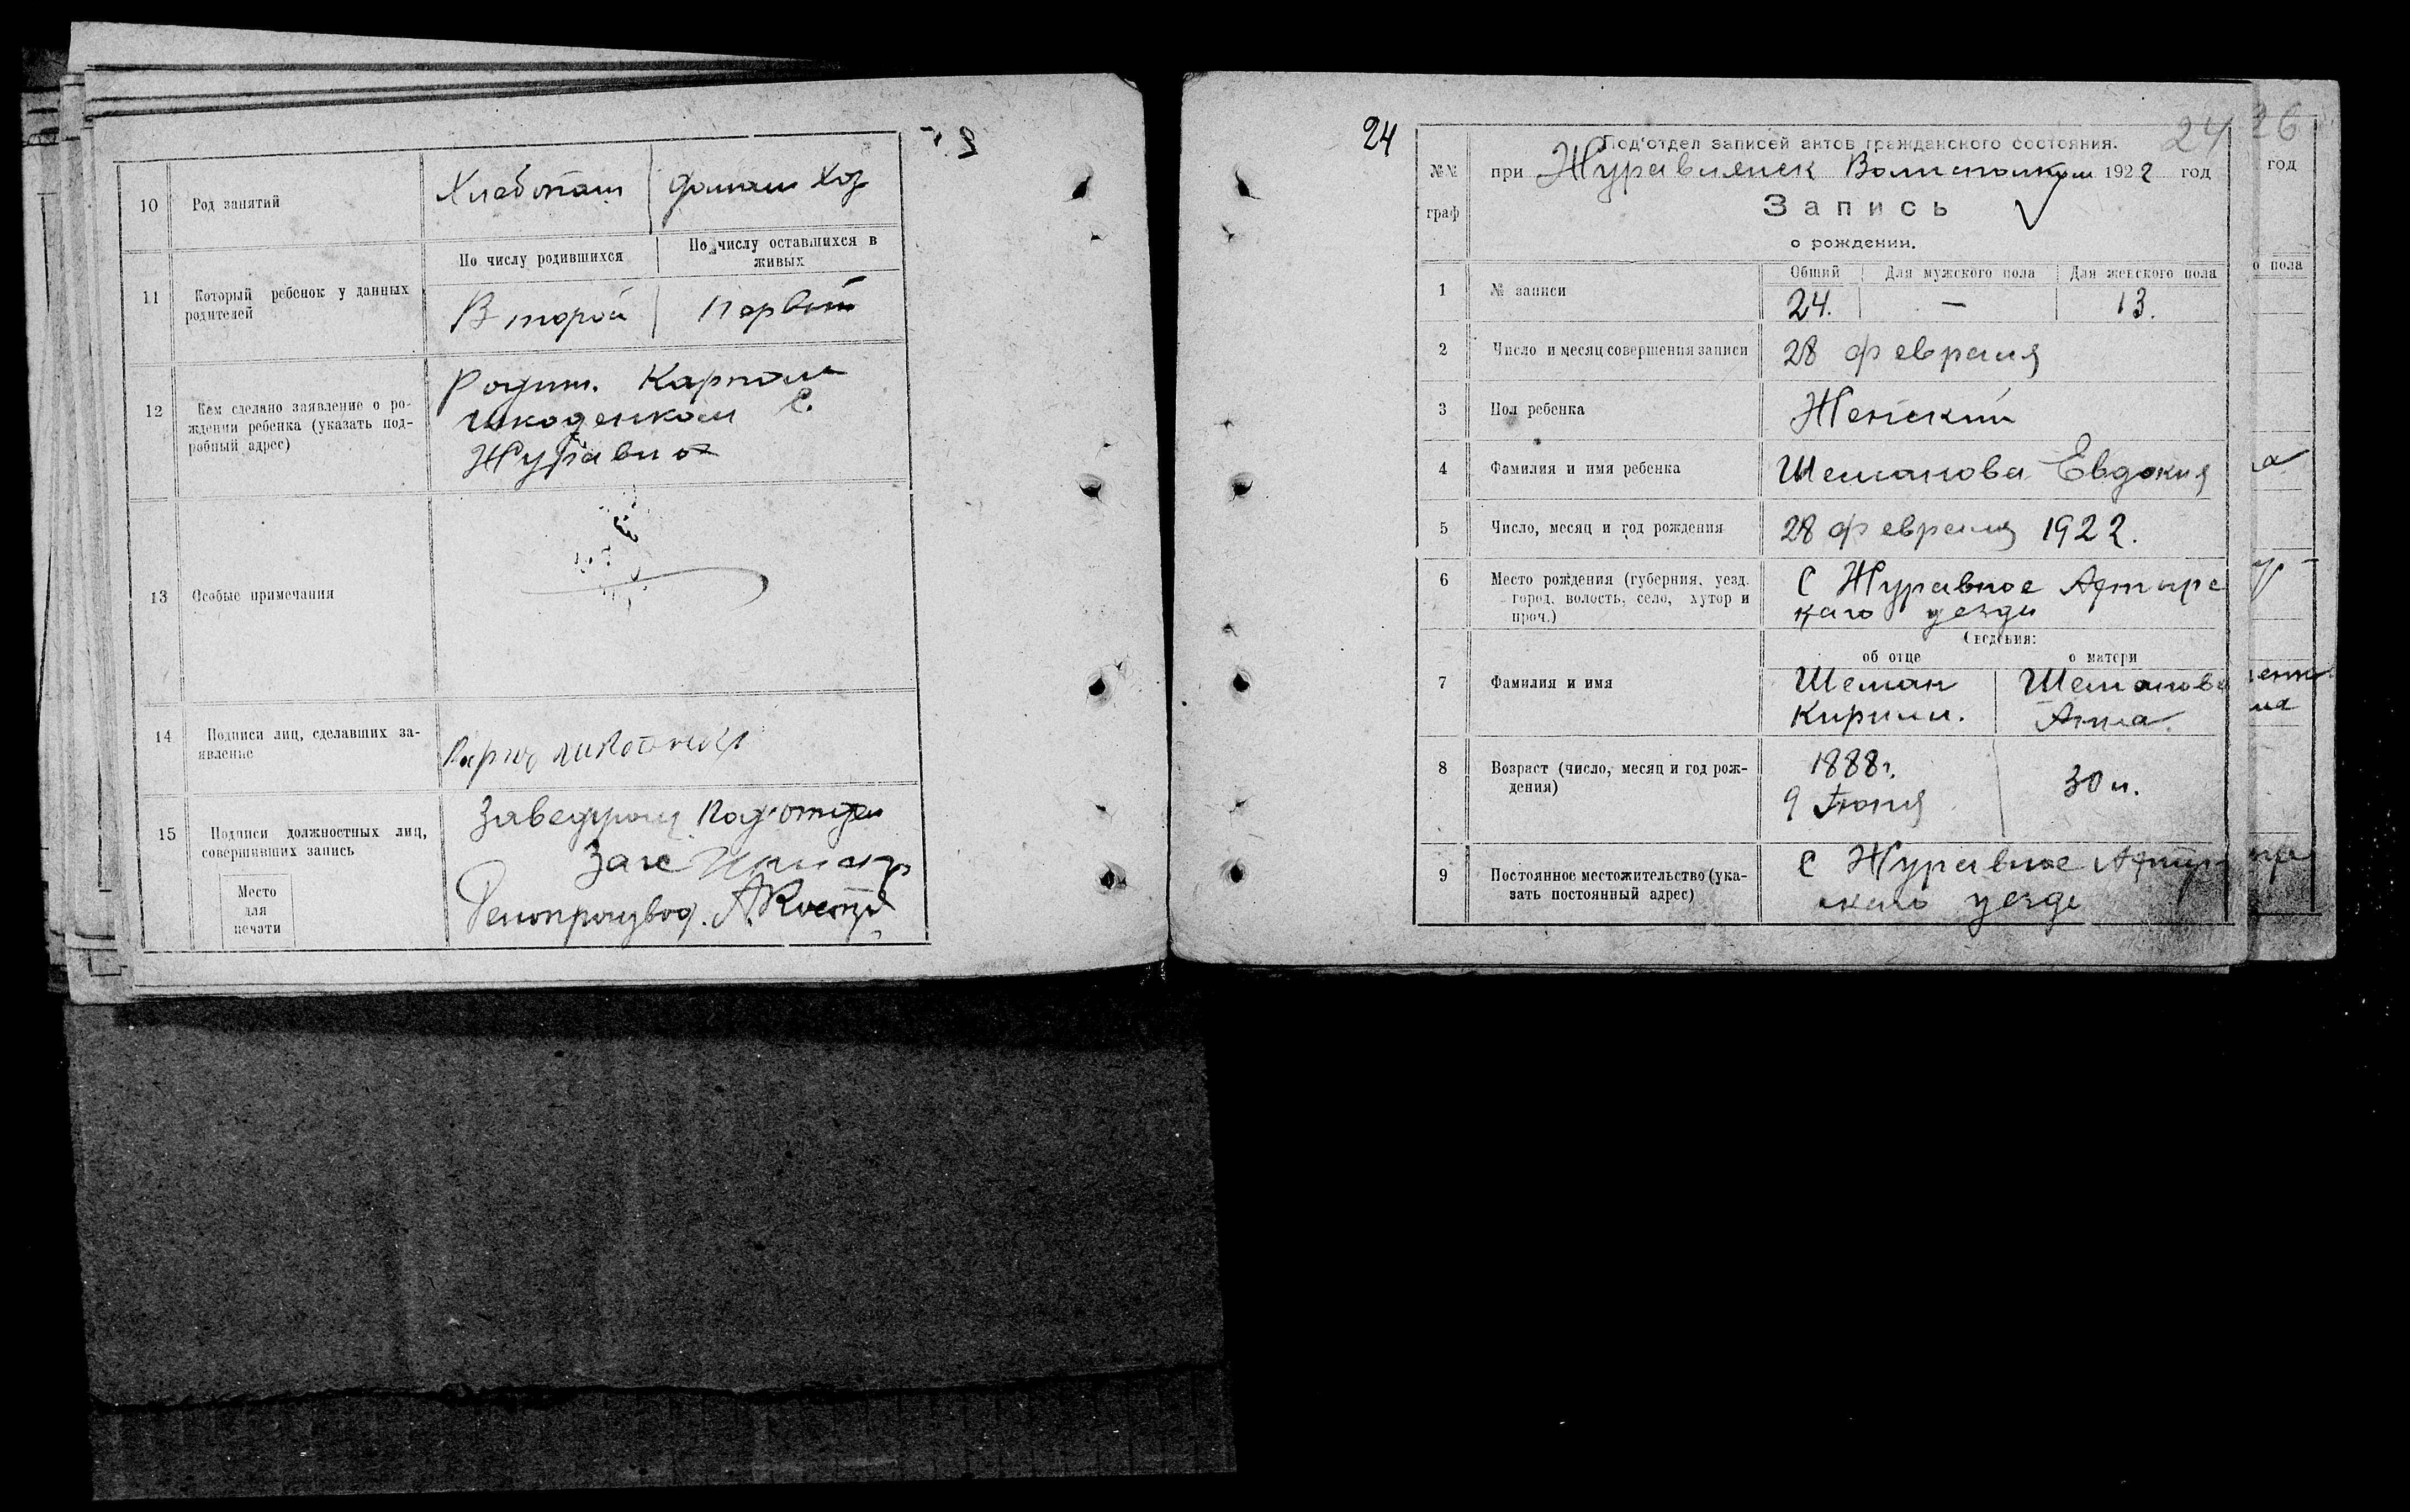 10 Род занятий Хлебопаш Домаш Хоз
11 Который ребенок у данных родителей
По числу родившихся По числу оставшихся в живых
Второй Первый
12 Кем сделано заявление о ро-
ждении ребенка (указать под-
робный адрес)
Родит. Карпом
С.
Журавное
13 Особые примечания
14 Подписи лиц, сделавших за-
явление
15 Подписи должностных лиц,
совершивших запись
Место
для
печати
Заведующ Подотдел
Делопроизвод.
24
24
26
№№
граф
Под'отдел записей актов гражданского состояния.
при Журавлянск Волисполком 1922 год
год
Запись
о рождении.
Общий Для мужского пола Для женского пола
о пола
1 № записи 24. — 13.
2 Число и месяц совершения записи 28 февраля
3 Пол ребенка Женский
4 Фамилия и имя ребенка Шеманова Евдокия
5 Число, месяц и год рождения 28 февраля 1922.
6 Место рождения (губерния, уезд.
город, волость, село, хутор и
проч.)
С Журавное Ахтырс
каго уезда
Сведения:
об отце о матери
7 Фамилия и имя
Шеман Шеманова
Кирилл. Анна.
8 Возраст (число, месяц и год рож-
дения)
1888г. 30 л.
9 Июня
9 Постоянное местожительство (ука-
зать постоянный адрес)
С Журавное Ахтыр
скаго уезда